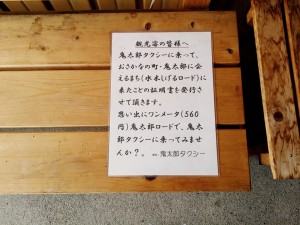 観光客の皆様へ
鬼太郎タクシーに乗って、
おさかなの町・鬼太郎に会
えるまち(水木しげるロード)に
来たことの証明書を発行さ
せて頂きます。
思い出にワンメータ(560
円)鬼太郎ロードで、鬼太
郎タクシーに乗ってみませ
んか?。 鬼太郎タクシー